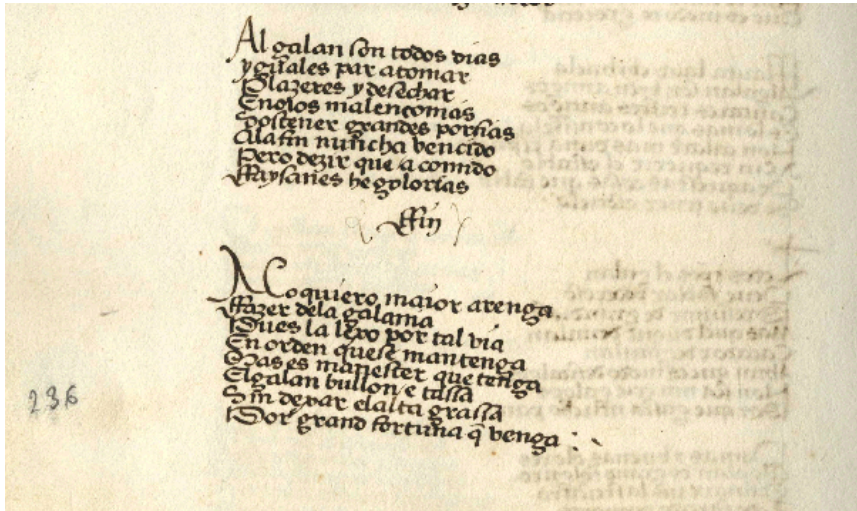 Al galan son todos dias
yguales par a tomar
Plazeres y desechar
Enojos malenconias
Sostener grandes porfias
Ala fin nuncha vencido
Pero dezir que a comido
Ffaysanes he golorias
Ffin
No quiero maior arenga
Ffazer dela galania
Pues la lexo por tal via
En orden quese mantenga
Mas es manester que tenga
El galan bullon e tassa
Sin dexar el alta grassa
Por grand fortuna q̃ venga
236